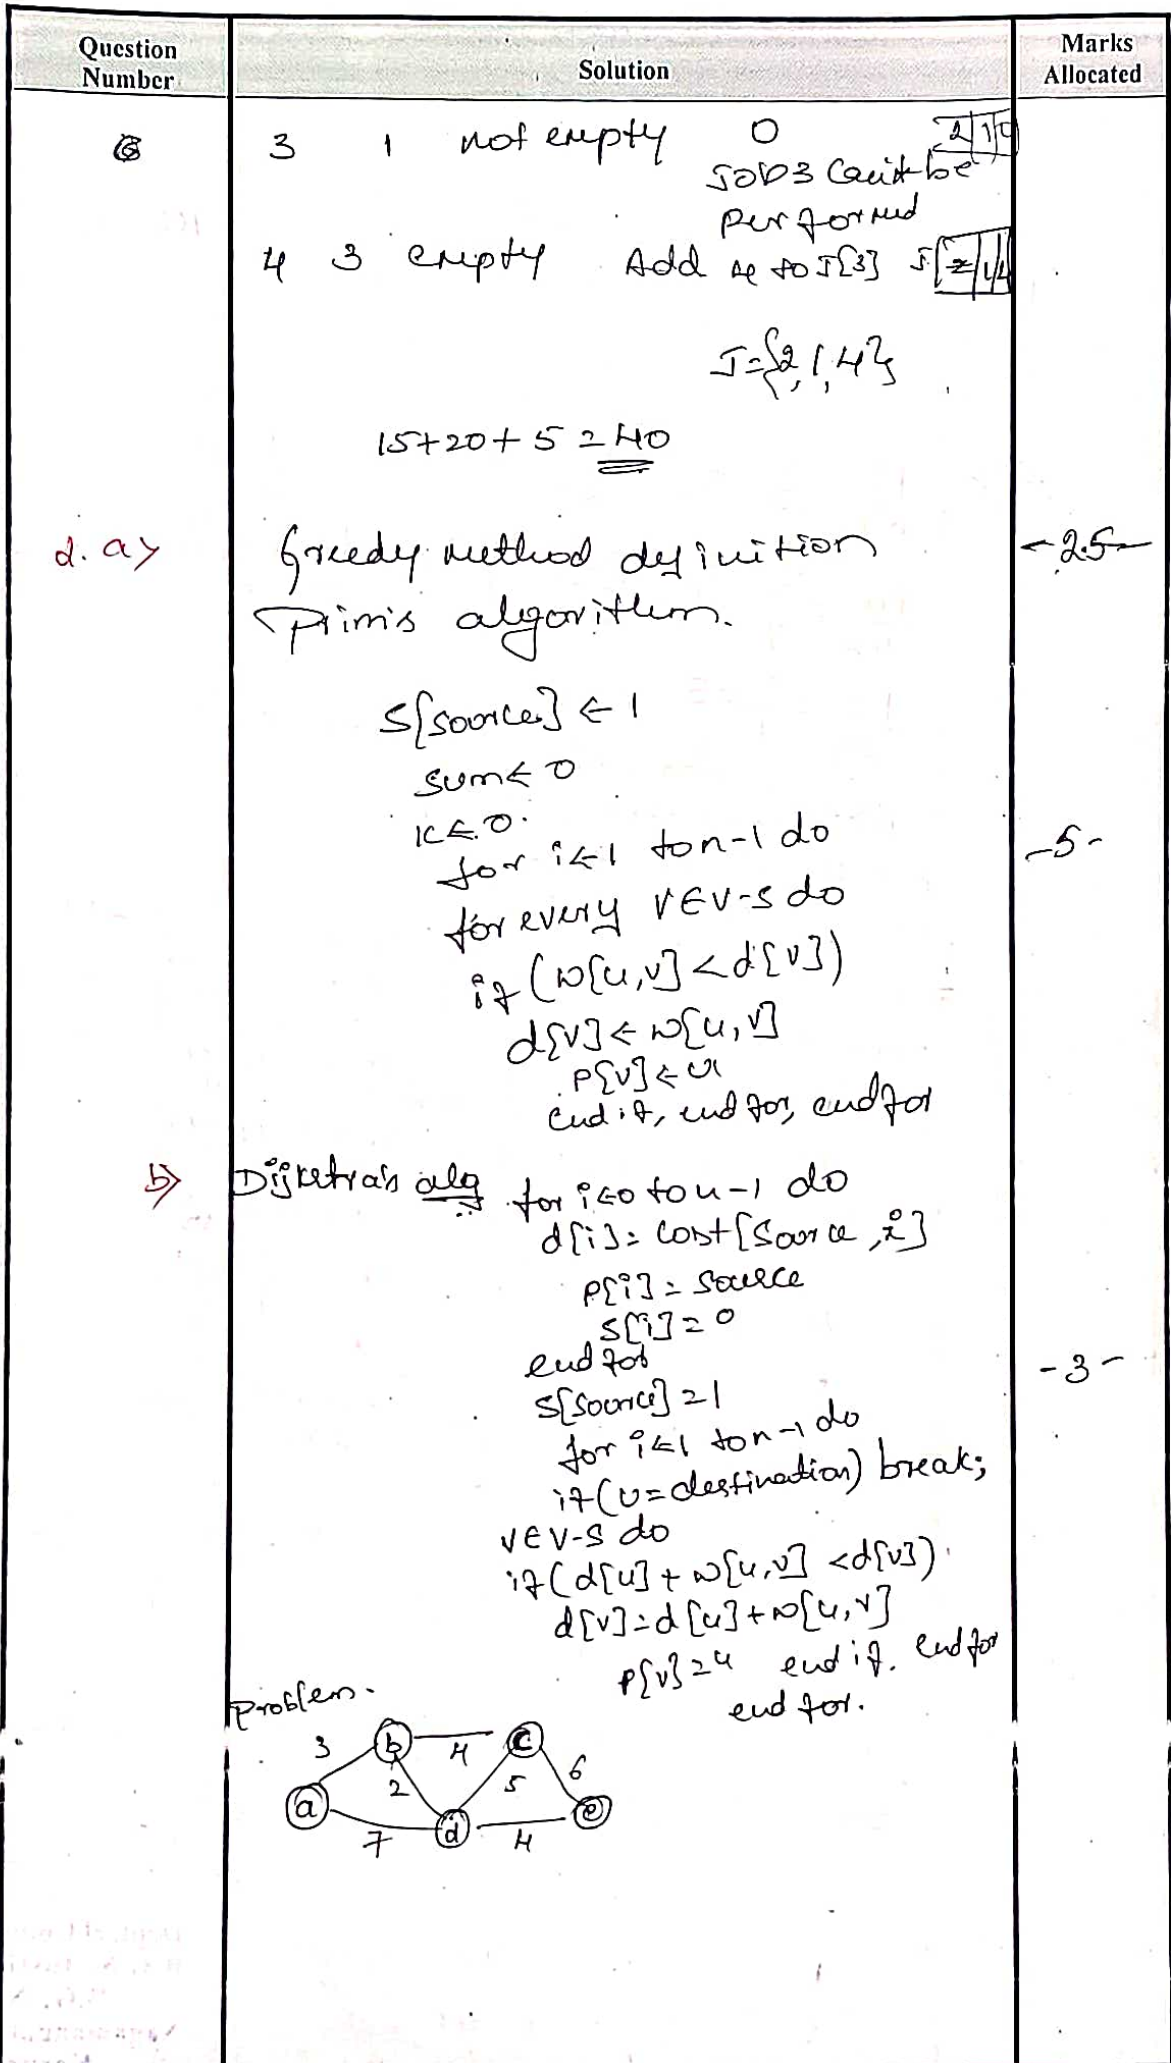 Question Number
Solution
Marks Allocated
3 1 not empty 0 2 1 0
JOB3 Can't be
performed
4 3 empty Add 4 to J[3] J 2 1 4
J={2,1,4}
15+20+5=40
2. a> Greedy method definition -2.5-
Prim's algorithm.
S[source] ← 1
sum ← 0
k ← 0.
for i←1 to n-1 do -5-
for every v∈V-S do
if (w[u,v] < d[v])
d[v] ← w[u,v]
P[v] ← u
end if, end for, end for
b> Dijketra's alg for i←0 to n-1 do
d[i]= cost[source, i]
P[i]= source
S[i]=0
end for -3-
S[source]=1
for i←1 to n-1 do
if(v=destination) break;
v∈V-S do
if(d[u]+w[u,v] <d[v])
d[v]=d[u]+w[u,v]
P[v]=u end if. end for
end for.
Problem.
3 b 4 c
2 5 6
a d e
7 4